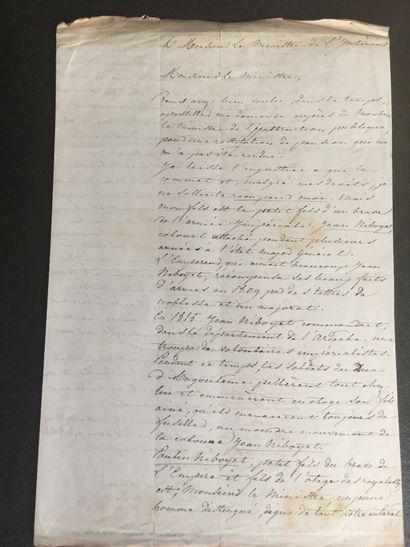 A Monsieur Le Ministre de l'Intérieur
Monsieur Le Ministre,
Vous avez bien voulu, dans le temps,
apostiller ma demande auprès de Monsieur
le Ministre de l'Instruction publique,
pour une restitution de pension que
m'a pas été rendue.
Je laisse l'injustice à qui la
commet et, malgré mes droits, je
ne sollicite rien pour moi. Mais
mon fils est le petit fils d'un brave
de l'armée Impériale, Jean Niboyet,
colonel attaché pendant plusieurs
années à l'état major général.
L'Empereur, qui aimait beaucoup Jean
Niboyet, récompensa ses beaux faits
d'armes en 1809 par des lettres de
noblesse et un majorat.
En 1815 Jean Niboyet commandait,
dans le département de l'Ardèche, une
troupe de volontaires impérialistes.
Pendant ce temps les soldats du Duc
d'Angoulême pillèrent tout chez
lui et emmenèrent en otage son fils
ainé, qu'ils menacèrent toujours de
fusiller, au moindre mouvement de
la colonne Jean Niboyet.
Paulin Niboyet, petit fils du brave de
l'Empire et fils de l'otage des royalistes
est, Monsieur le Ministre, un jeune
homme distingué, digne de tout votre intérêt